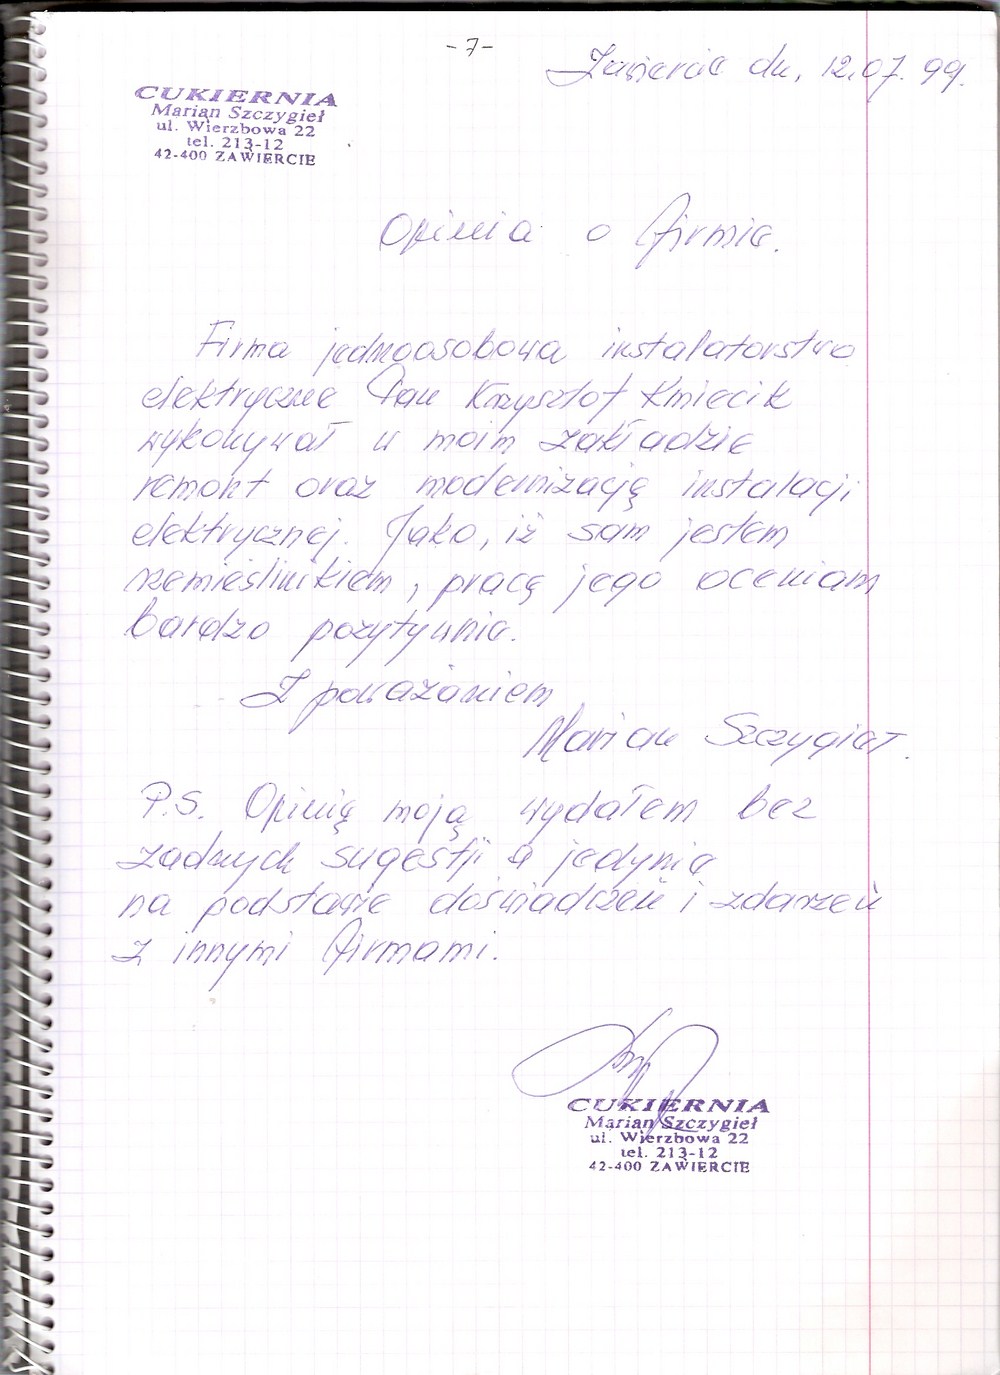 -7-
Zawiercie dn. 12.07.99.
CUKIERNIA
Marian Szczygieł
ul. Wierzbowa 22
tel. 213-12
42-400 ZAWIERCIE
Opinia o firmie.
Firma jednoosobowa instalatorstwo
elektryczne Pan Krzysztof Kmiecik
wykonywał w moim zakładzie
remont oraz modernizację instalacji
elektrycznej. Jako, iż sam jestem
rzemieślnikiem, pracę jego oceniam
bardzo pozytywnie.
Z poważaniem
Marian Szczygieł.
P.S. Opinię moją wydałem bez
żadnych sugestji a jedynie
na podstawie doświadczeń i zdarzeń
z innymi firmami.
CUKIERNIA
Marian Szczygieł
ul. Wierzbowa 22
tel. 213-12
42-400 ZAWIERCIE